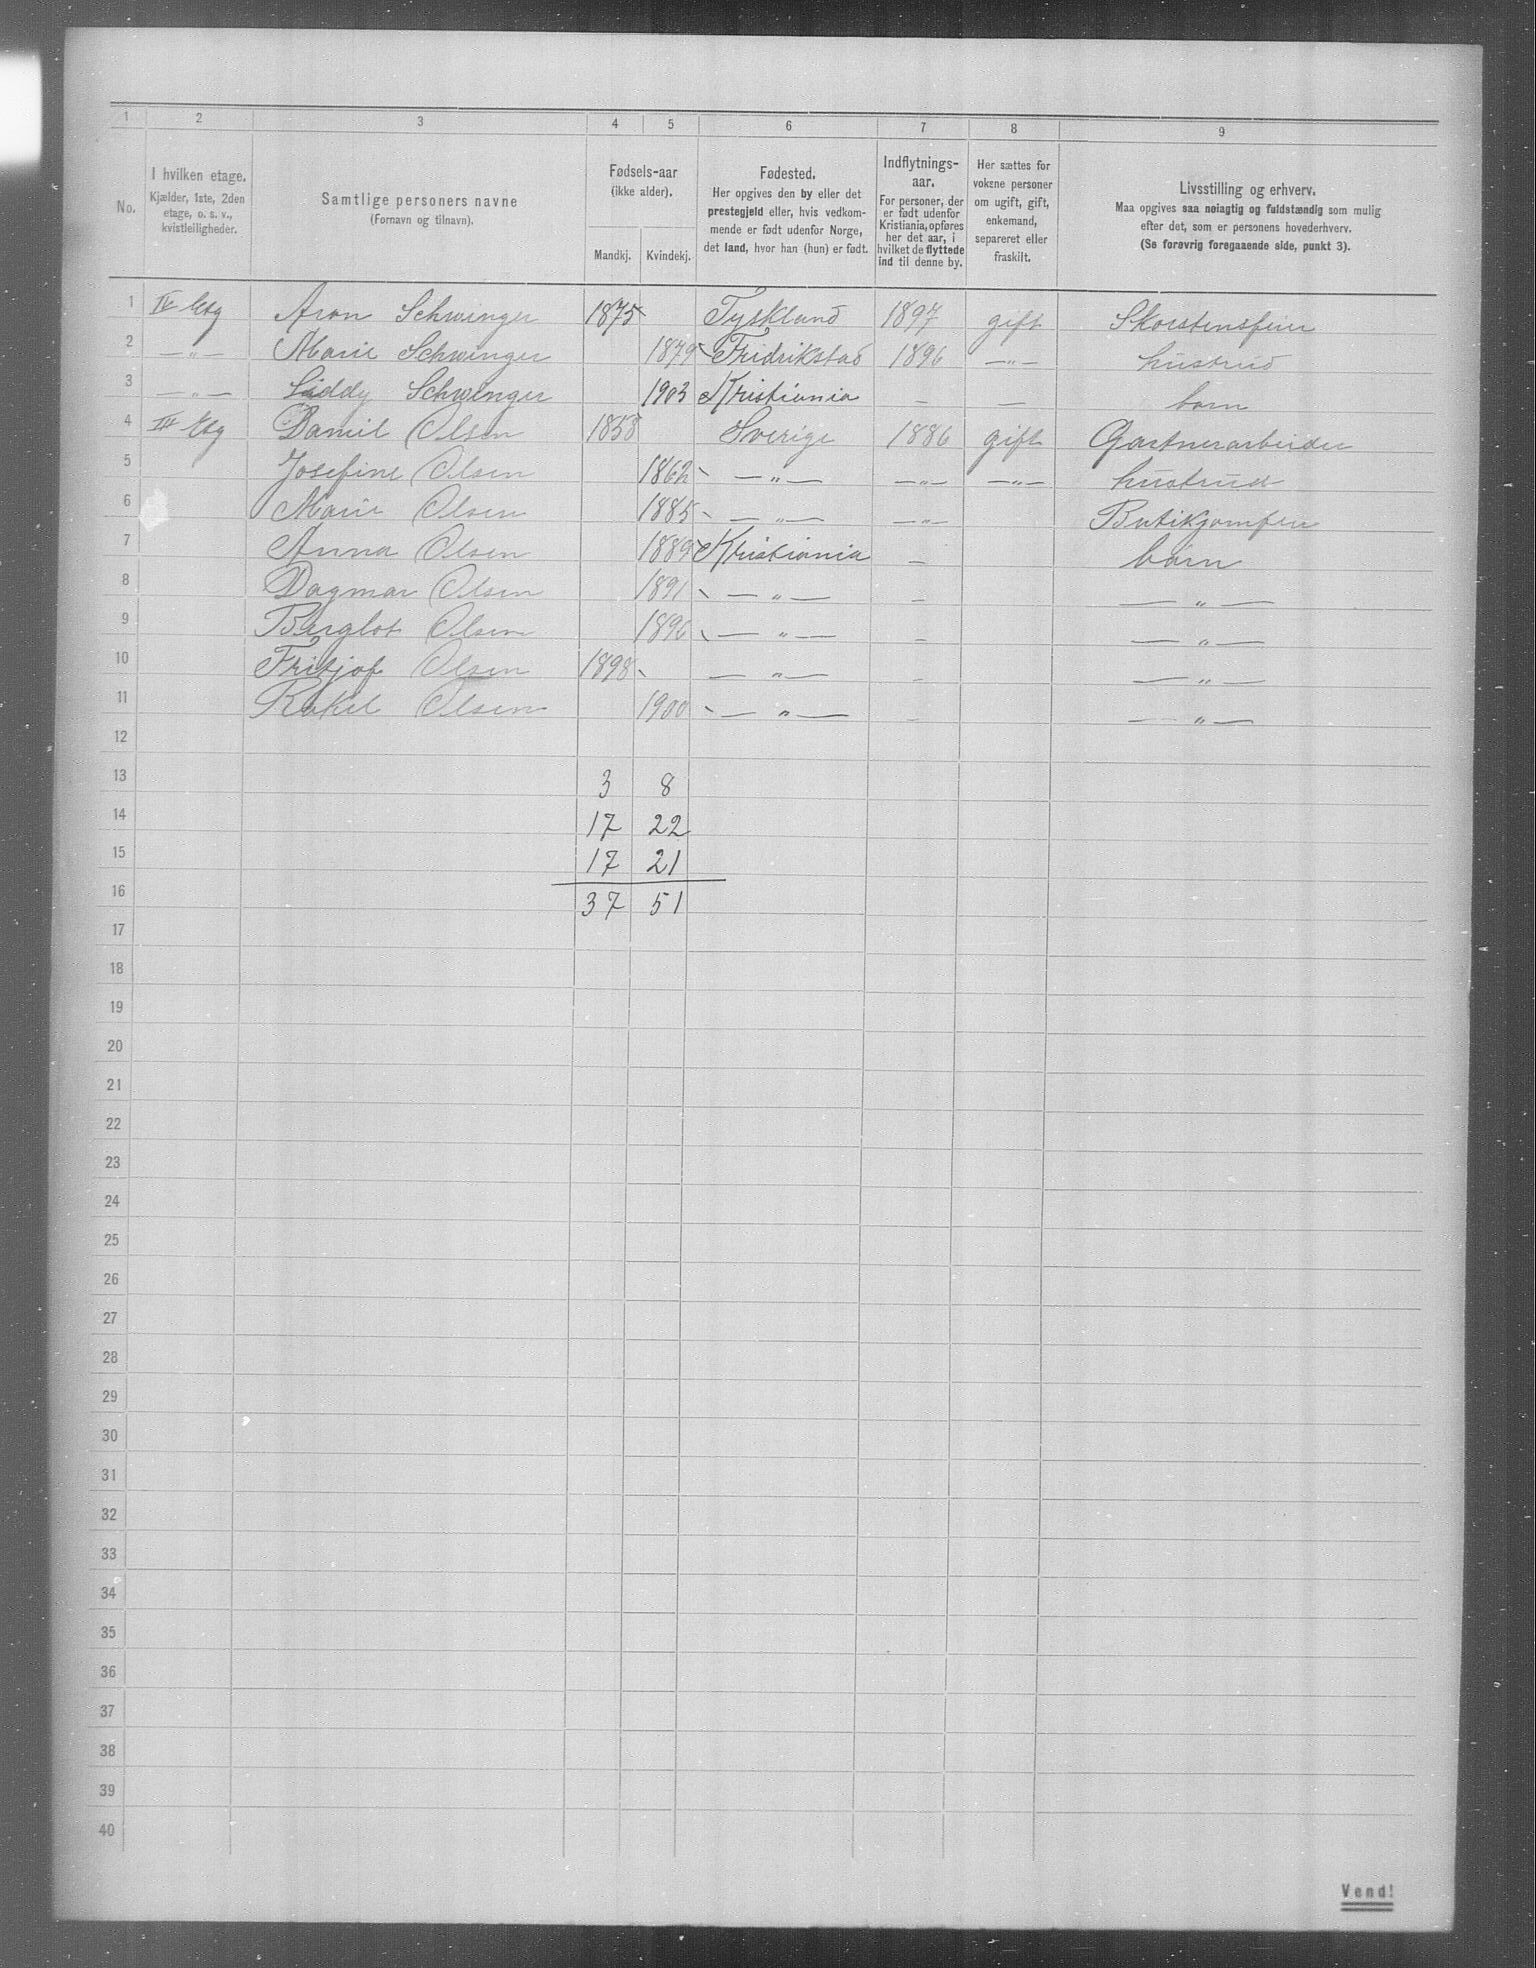 1 2 3 4 5 6 7 8 9
No.
I hvilken etage.
Kjælder, 1ste, 2den
etage, o. s. v.,
kvistleiligheder.
Samtlige personers navne
(Fornavn og tilnavn).
Fødsels-aar
(ikke alder).
Mandkj. Kvindekj.
Fødested.
Her opgives den by eller det
prestegjeld eller, hvis vedkom-
mende er født udenfor Norge,
det land, hvor han (hun) er født.
Indflytnings-
aar.
For personer, der
er født udenfor
Kristiania, opføres
her det aar, i
hvilket de flyttede
ind til denne by.
Her sættes for
voksne personer
om ugift, gift,
enkemand,
separeret eller
fraskilt.
Livsstilling og erhverv.
Maa opgives saa nøiagtig og fuldstændig som mulig
efter det, som er personens hovederhverv.
(Se forøvrig foregaaende side, punkt 3).
1 IV Etg Aron Schwinger 1875 Tyskland 1897 gift Skorstensfeier
2 —"— Marie Schwinger 1879 Fridrikstad 1896 —"— hustrud
3 —"— Liddy Schwinger 1903 Kristiania — — barn
4 III Etg Daniel Olsen 1858 Sverige 1886 gift Gartnerarbeider
5 Josefine Olsen 1862 —"— —"— —"— hustrud
6 Marie Olsen 1885 —"— —"— Butikjomfru
7 Anna Olsen 1889 Kristiania — barn
8 Dagmar Olsen 1891 —"— — —"—
9 Berglot Olsen 1896 —"— — —"—
10 Fritjof Olsen 1898 —"— — —"—
11 Rakel Olsen 1900 —"— — —"—
12
13 3 8
14 17 22
15 17 21
16 37 51
17
18
19
20
21
22
23
24
25
26
27
28
29
30
31
32
33
34
35
36
37
38
39
40
Vend!